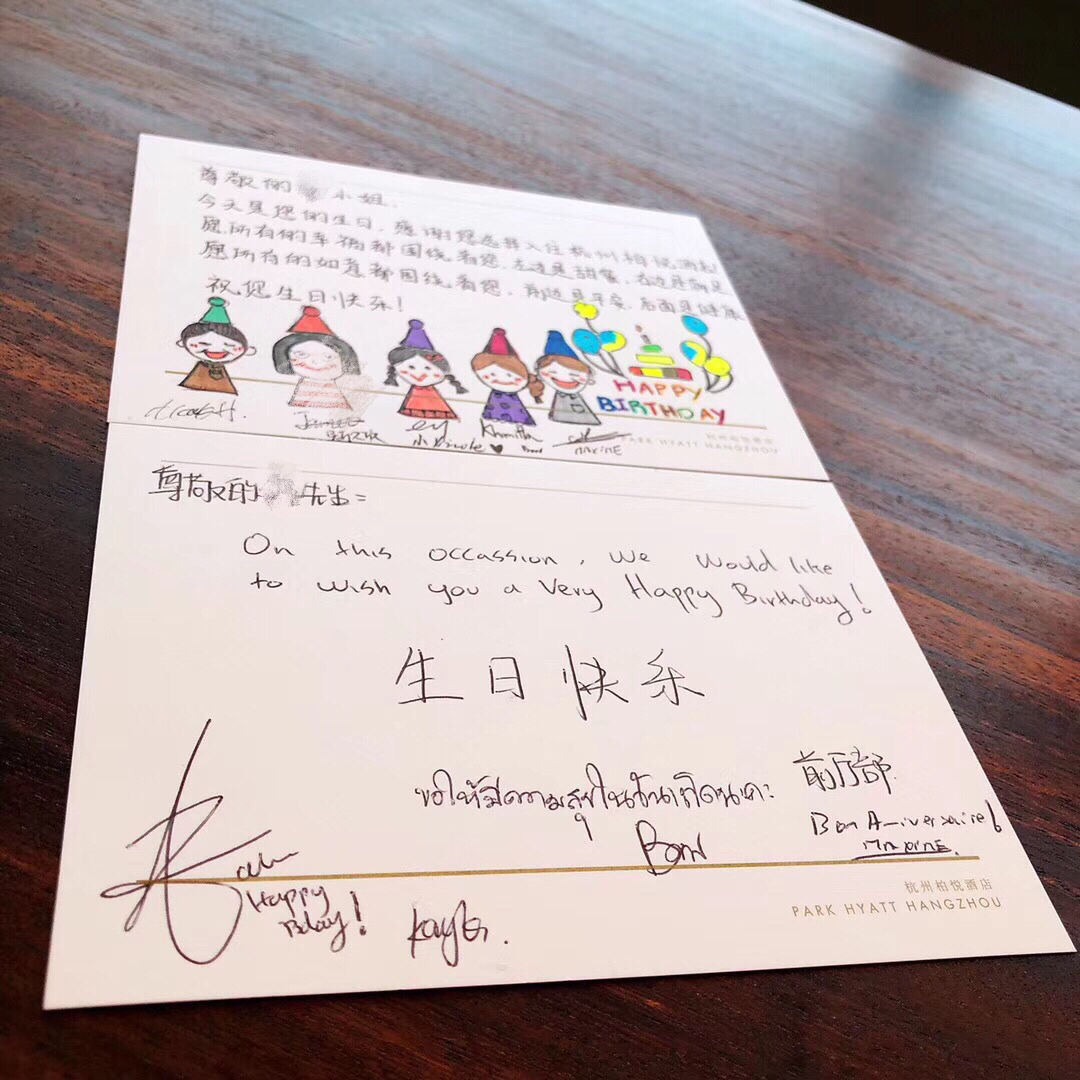 尊敬的 小姐,
今天是您的生日,感谢您选择入住杭州柏悦酒店
愿所有的幸福都围绕着您,左边是甜蜜,右边是满足
愿所有的如意都围绕着您,前边是平安,后面是健康
祝您生日快乐!
HAPPY
BIRTHDAY
小Nicole
Bow
MAXINE
杭州柏悦酒店
PARK HYATT HANGZHOU
尊敬的 先生:
On this occassion, we would like
to wish you a Very Happy Birthday!
生日快乐
ขอให้มีความสุขในวันเกิดนะคะ
Bow
前厅部
Bon Aniversaire
MAXINE.
Happy
Bday!
Kayla.
杭州柏悦酒店
PARK HYATT HANGZHOU